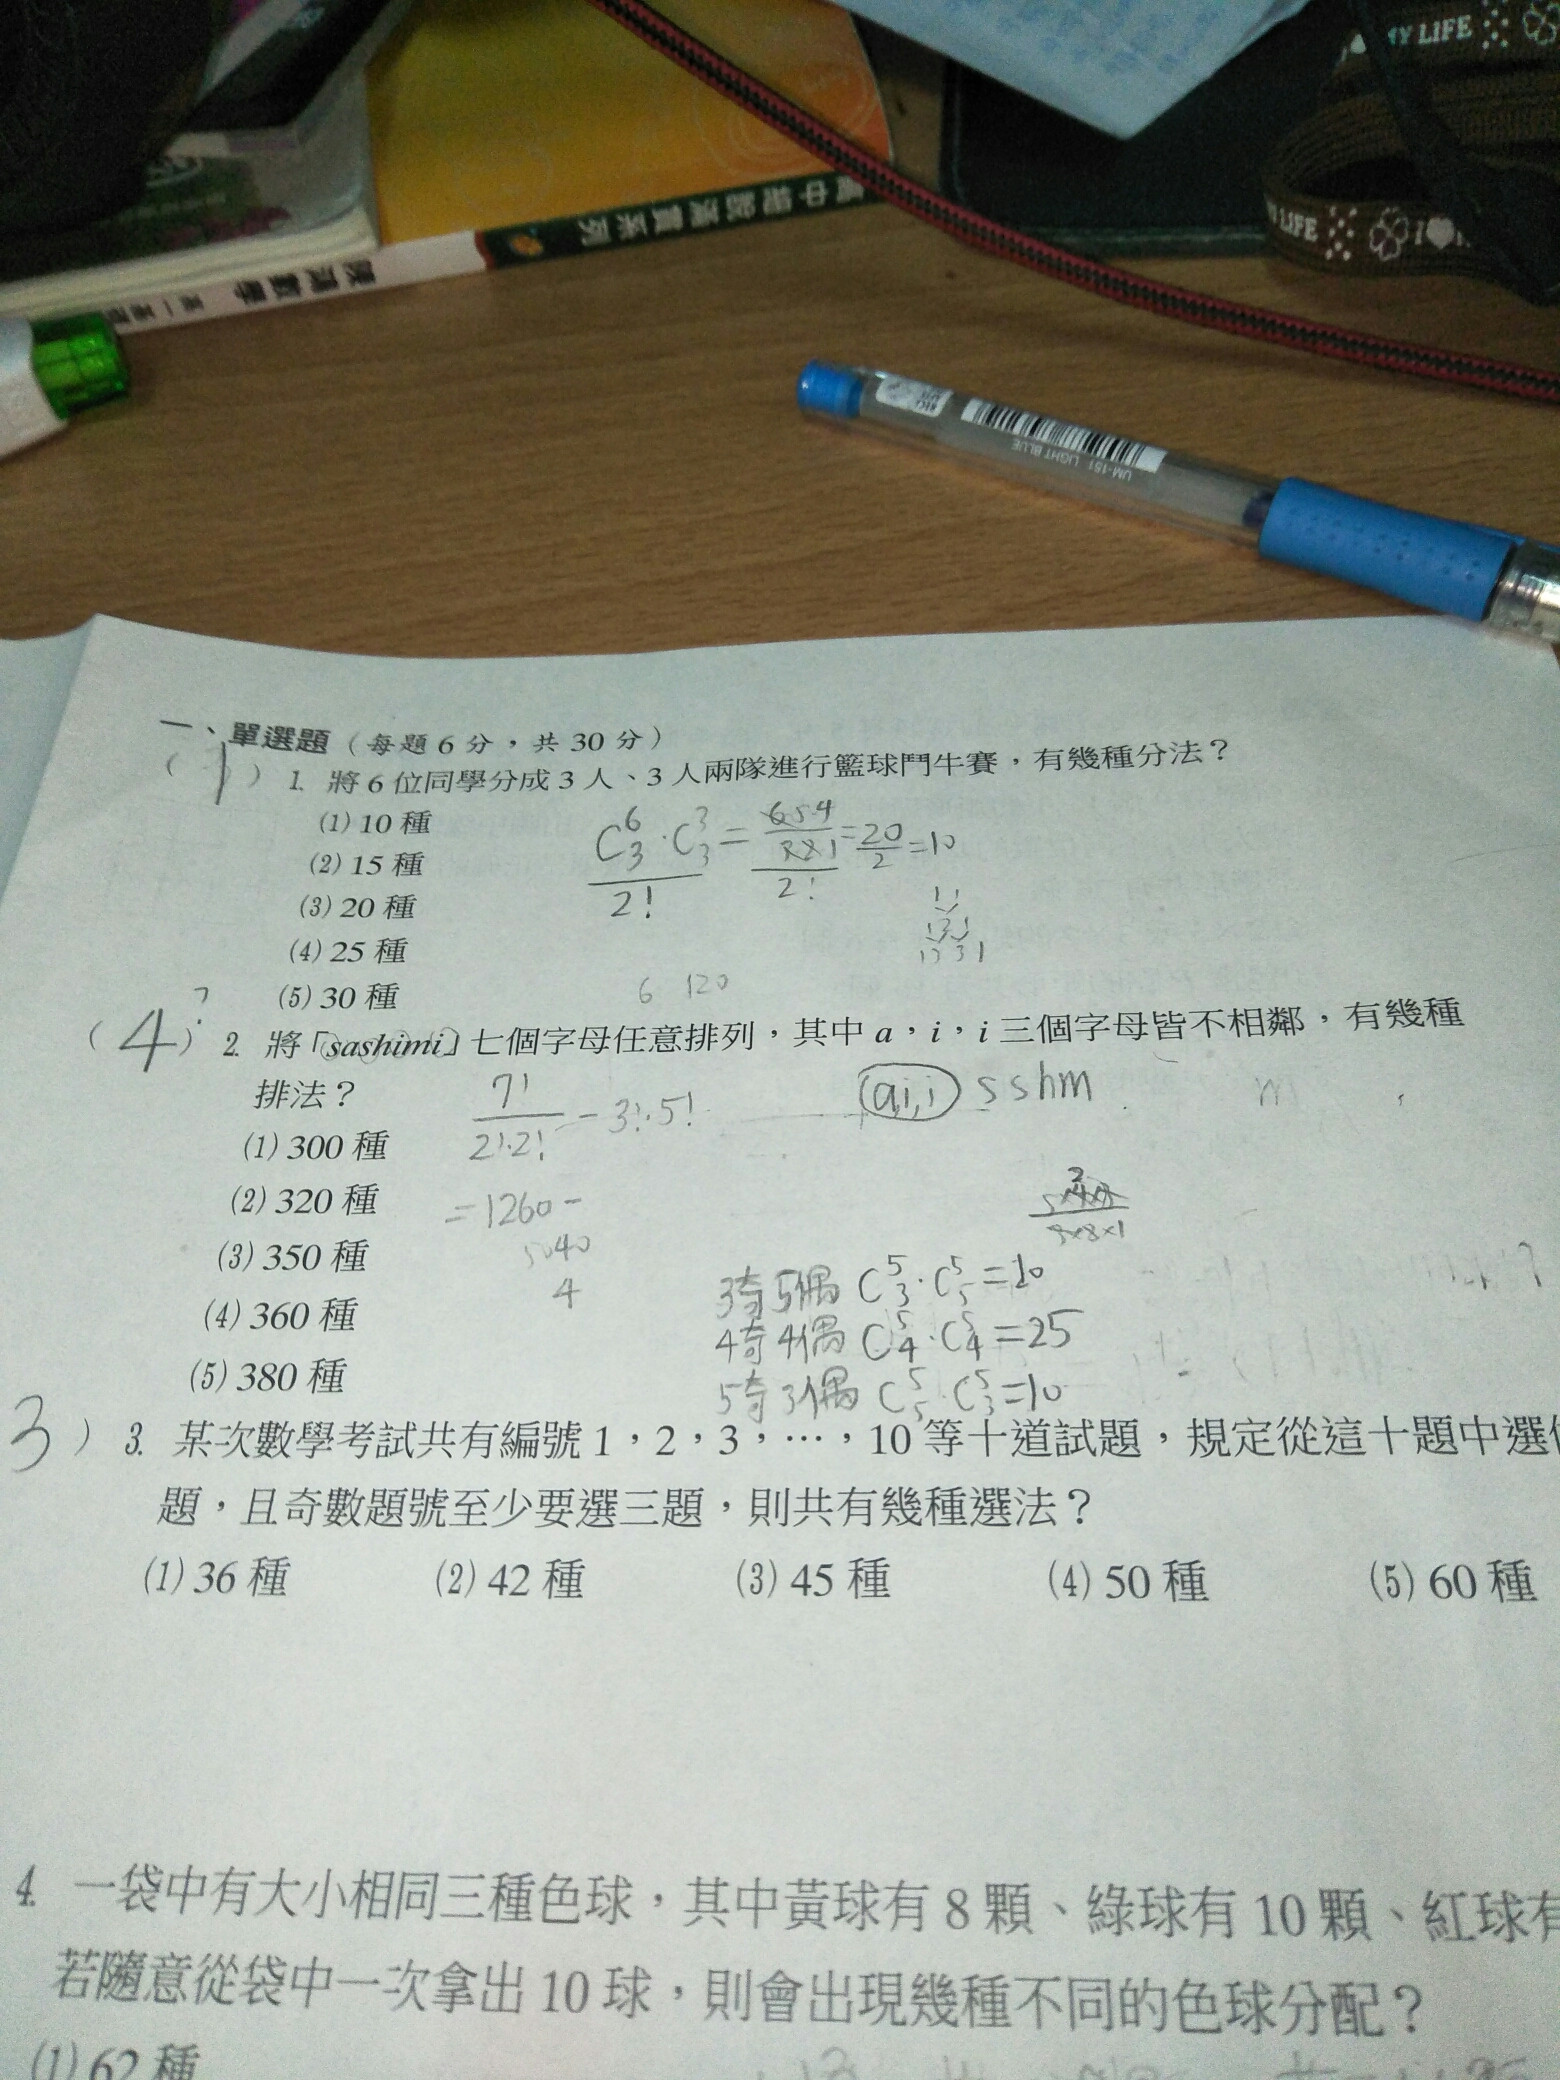 MY LIFE
LIFE
I
高中總複習系列
UM-151 LIGHT BLUE
一、單選題（每題 6 分，共 30 分）
( 1 ) 1. 將 6 位同學分成 3 人、3 人兩隊進行籃球鬥牛賽，有幾種分法？
(1) 10 種
(2) 15 種
(3) 20 種
(4) 25 種
(5) 30 種
C^6_3 · C^3_3 / 2! = 654 / 321 / 2! = 20/2 = 10
1 1
1 2 1
1 3 3 1
6 120
( 4 ) ? 2. 將「sashimi」七個字母任意排列，其中 a，i，i 三個字母皆不相鄰，有幾種
排法？
(1) 300 種
(2) 320 種
(3) 350 種
(4) 360 種
(5) 380 種
7! / 2!·2! − 3!·5!
(a,i,i) s s h m
= 1260 −
5040
4
3奇5偶 C^5_3 · C^5_5 = 10
4奇4偶 C^5_4 · C^5_4 = 25
5奇3偶 C^5_5 · C^5_3 = 10
3 ) 3. 某次數學考試共有編號 1，2，3，⋯，10 等十道試題，規定從這十題中選
題，且奇數題號至少要選三題，則共有幾種選法？
(1) 36 種 (2) 42 種 (3) 45 種 (4) 50 種 (5) 60 種
4. 一袋中有大小相同三種色球，其中黃球有 8 顆、綠球有 10 顆、紅球有
若隨意從袋中一次拿出 10 球，則會出現幾種不同的色球分配？
(1) 62 種